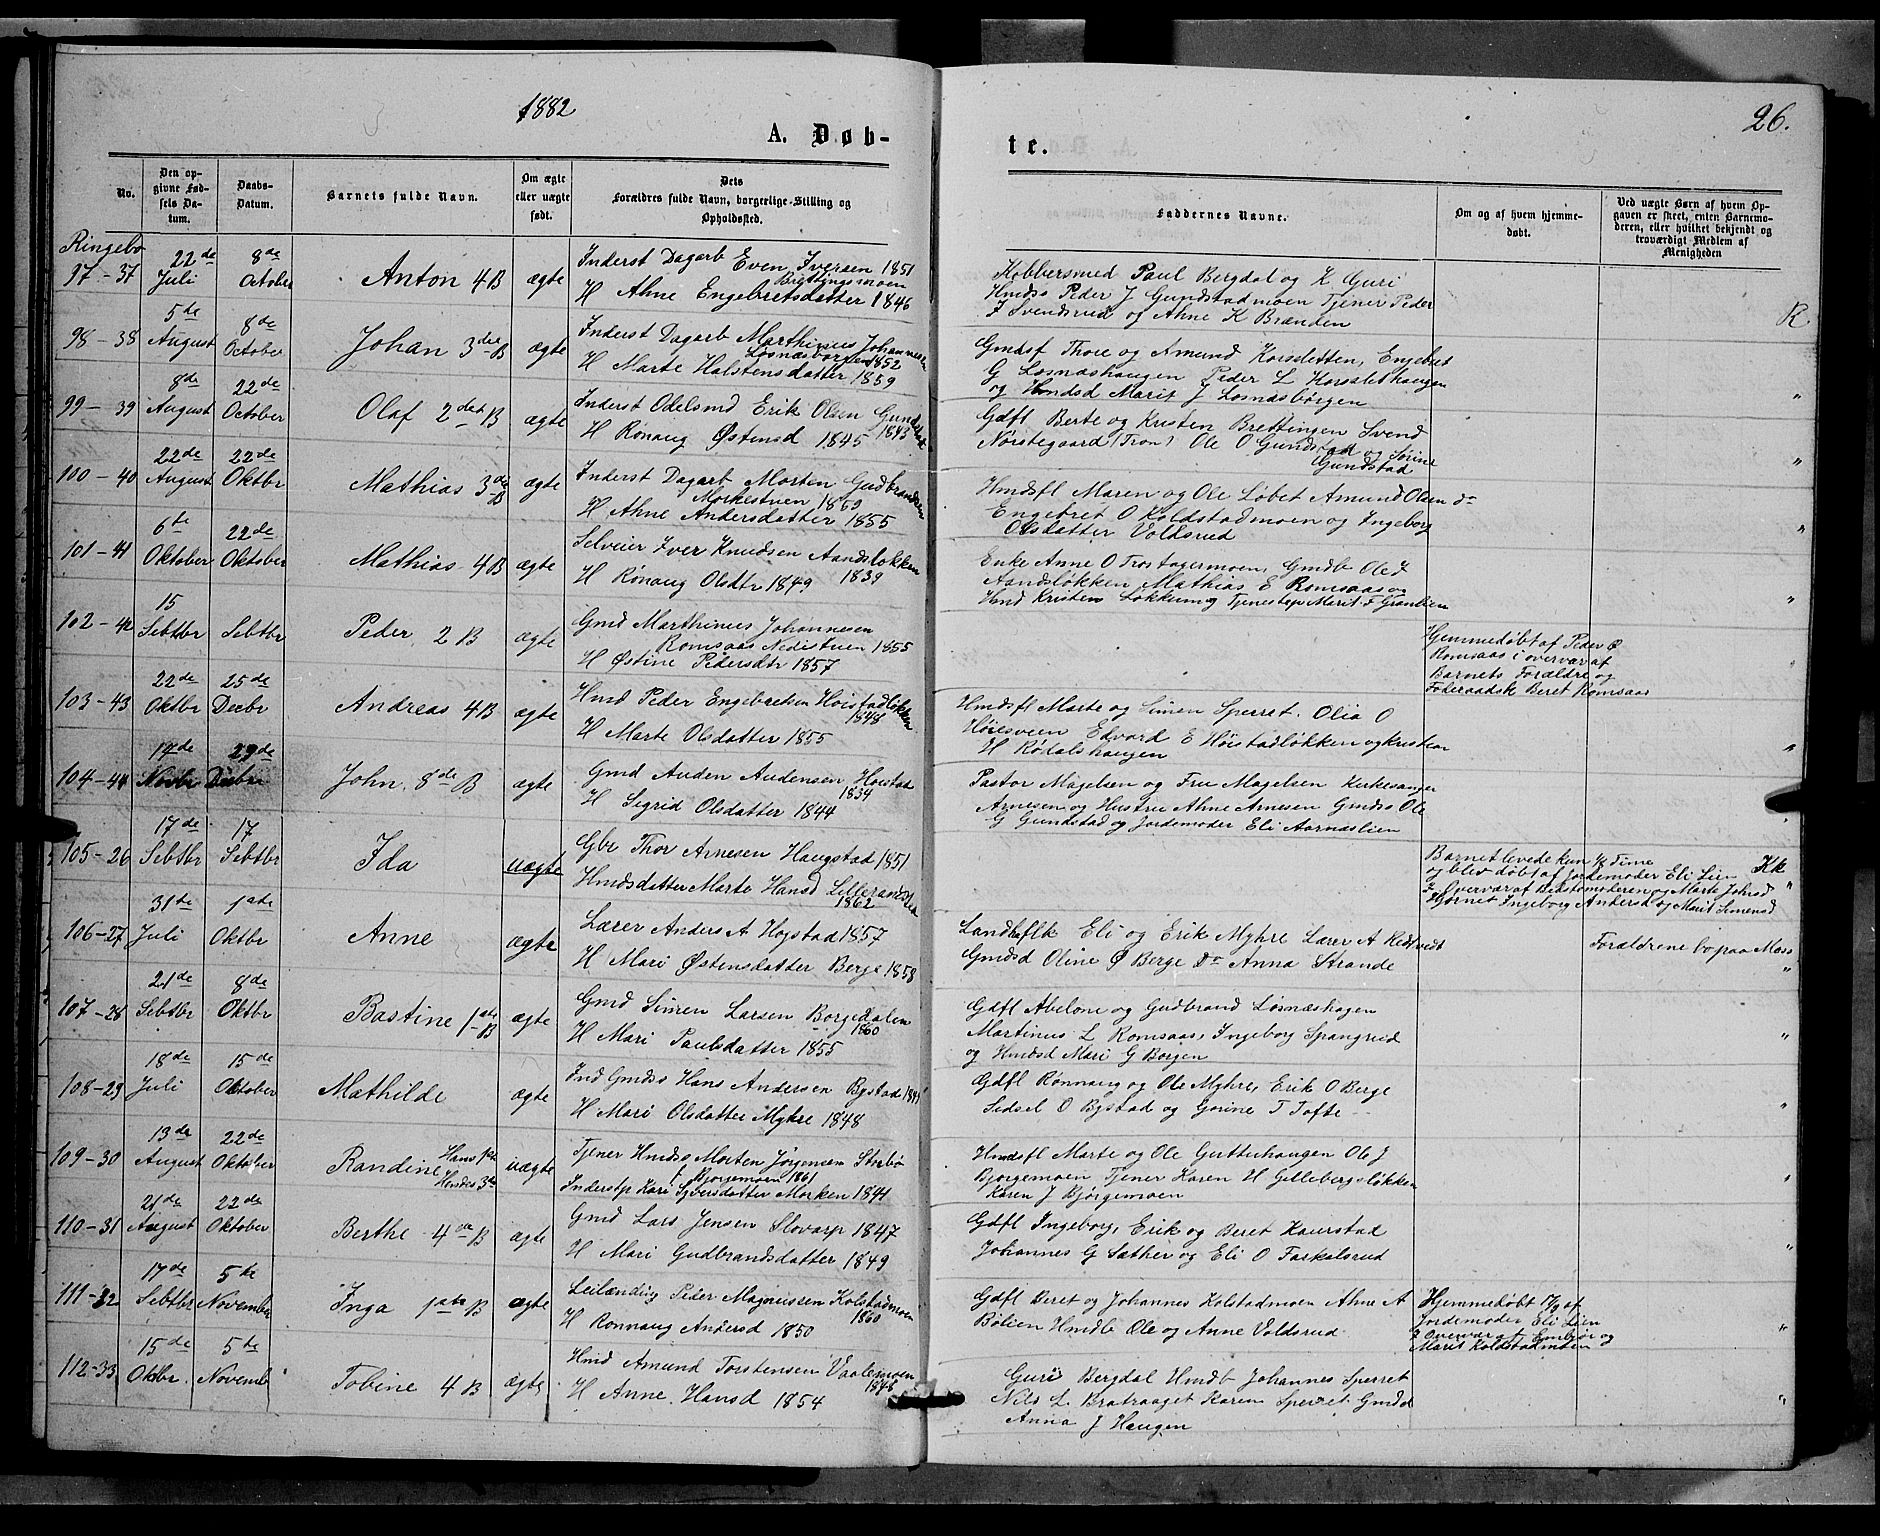 1882
26.
A. Døb-
te.
No.
Den op-
givne Fød-
sels Da-
tum.
Daabs-
Datum.
Barnets fulde Navn.
Om ægte
eller uægte
født.
Dets
Forældres fulde Navn, borgerlige Stilling og
Opholdssted.
Faddernes Navne.
Om og af hvem hjemme-
døbt.
Ved uægte Børn af hvem Op-
gaven er skeet, enten Barnemo-
deren, eller hvilket bekjendt og
troværdigt Medlem af
Menigheden
Ringebo
97-37
22de
Juli
8de
October
Anton 4B
ægte
Inderst Dagarb Even Iversen 1851
Brettingsmoen
H Ahne Engebretsdatter 1846
Kobbersmed Paul Bergdal og K Guri
Hmdss Peder J Gundstadmoen Tjener Peder
I Svendsrud og Ahne K Brænden
R
98-38
5de
August
8de
October
Johan 3die B
ægte
Inderst Dagarb Marthinus Johannesen
Losnæsborgen 1852
H Marte Halstensdatter 1859
Gmdsf Thore og Amund Korsletten, Engebret
G Losnæshaugen Peder L Korsslethaugen
og Hmdsd Marit J Losnæsborgen
99-39
8de
August
22de
October
Olaf 2det B
ægte
Inderst Odelsmd Erik Olsen Gundstad
1843
H Rønaug Østensd 1845
Gdfl Berte og Kristen Brettingen Svend
Nørstegaard (Tron) Ole O Gundstad og Sørine
Gundstad
"
100-40
22de
August
22de
Oktbr
Mathias 3de B
ægte
Inderst Dagarb Morten Gudbrandsen
Morkestuen 1859
H Ahne Andersdatter 1855
Hmdsfl Maren og Ole Løbet Amund Olsen do
Engebret O Koldstadmoen og Ingeborg
Olsdatter Voldsrud
"
101-41
6te
Oktober
22de
Oktober
Mathias 4B
ægte
Selveier Iver Knudsen Aandsløkken
1839
H Rønaug Olsdtr 1849
Enke Anne O Trostagermoen, Gmdb Ole I
Aandsløkken Mathias E Romsaas og
Hmd Kristen Løkken og Tjenestep Marit F Granlien
"
102-42
15
Sebtbr
Sebtbr
Peder 2 B
ægte
Gmd Marthinus Johannesen
Romsaas Nedistuen 1855
H Østine Pedersdtr 1857
Hjemmedøbt af Peder Ø
Romsaas i overvær af
Barnets Forældre og
Føderaadsk Beret Romsaas
"
103-43
22de
Oktbr
25de
Decbr
Andreas 4B
ægte
Hmd Peder Engebretsen Hoistadløkken
1848
H Marte Olsdatter 1855
Hmdsfl Marte og Simen Sperret. Olia O
Høiesveen Edvard E Høistadløkken og Kristian
H Rødalshaugen
"
104-44
17de
Novbr
29de
Decbr
John 8de B
ægte
Gmd Auden Audensen Høistad
1839
H Sigrid Olsdatter 1844
Pastor Magelsen og Fru Magelsen Kirkesanger
Arnesen og Hustru Ahne Arnesen Gmdss Ole
G Gundstad og Jordemoder Eli Aarnæslien
"
105-26
17de
Sebtbr
17
Sebtbr
Ida
uægte
Gbr Thor Arnesen Haugstad 1851
Hmdsdatter Marte Hansd Lillerandslien
1862
Barnet levede kun ½ Time
og blev døbt af Jordemoder Eli Lien
I Overvær af Bedstemoderen og Marte Johnsd
Hjørnet Ingeborg Andersd og Marit Simensd
Kk
"
106-27
31de
Juli
1ste
Oktbr
Anne
ægte
Lærer Anders A Hogstad 1857
H Mari Østensdatter Berge 1858
Landhflk Eli og Erik Myhre Lærer A Redtvedt
Gmdsd Oline Ø Berge Do Anna Strande
Forældrene bo paa Moss
"
107-28
21de
Sebtbr
8de
Oktbr
Bastine 1ste B
ægte
Gmd Simen Larsen Borgedalen
1860
H Mari Paulsdatter 1855
Gdfl Abelone og Gudbrand Losnæshagen
Martinus L Romsaas, Ingeborg Spangrud
og Hmdsd Mari G Borgen
"
108-29
18de
Juli
15de
Oktober
Mathilde
ægte
Ind Gmdss Hans Andersen Bystad 1841
H Mari Olsdatter Myhre 1848
Gdfl Rønnaug og Ole Myhre, Erik O Berge
Sidsel O Bystad og Gorine T Tofte
"
109-30
13de
August
22de
Oktober
Randine
Hans 1ste
Hendes 3de
uægte
Tjener Hmdss Morten Jørgensen Strebø
Bjorgemoen 1861
Inderstp Kari Syversdatter Morken 1844
Hmdsfl Marte og Ole Gutterhaugen Ole J
Bjorgemoen Tjener Karen H Gillebergsløkken
Karen J Bjørgemoen
"
110-31
21de
August
22de
Oktober
Berthe 4de B
ægte
Gmd Lars Jensen Slovarp 1847
H Mari Gudbrandsdatter 1849
Gdfl Ingeborg, Erik og Beret Kaurstad
Johannes G Sæther og Eli O Farkalsrud
"
111-32
17de
Sebtbr
5te
November
Inga 1ste B
ægte
Leilænding Peder Magnussen Kolstadmoen
1860
H Ronnaug Andersd 1850
Gdfl Beret og Johannes Kolstadmoen Ahne A
Bølien Hmdb Ole og Anne Voldsrud
Hjemmedøbt 17/9 af
Jordemoder Eli Lien
I Overvær af Embjør og
Marit Koldstadmoen
"
112-33
15de
Oktbr.
5te
Novemb
Tobine 4 B
ægte
Hmd Amund Torstensen Vaalemoen
1848
H Anne Hansd 1854
Guri Bergdal Hmdb Johannes Sperret
Nils L Bratraaget Karen Sperret Gmdd
Anna J Haugen
"